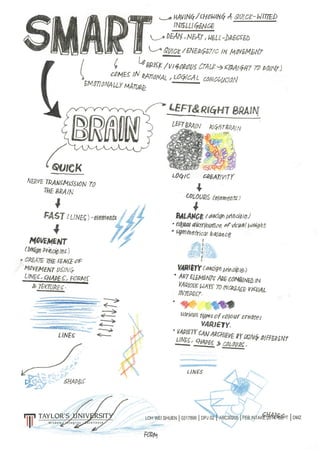 SMART
• HAVING/SHOWING A QUICK-WITTED
INTELLIGENCE
• DEAN, NEAT, WELL-DRESSED
• QUICK/ENERGETIC IN MOVEMENT
• BRISK/VIGOROUS (TALK → STRAIGHT TO POINT)
COMES IN RATIONAL, LOGICAL CONCLUSION
EMOTIONALLY MATURE
BRAIN
LEFT & RIGHT BRAIN
LEFT BRAIN RIGHT BRAIN
LOGIC CREATIVITY
QUICK
NERVE TRANSMISSION TO
THE BRAIN
FAST (LINES) - elements
MOVEMENT
(design principles)
• CREATE THE SENSE OF
MOVEMENT USING
LINES, SHAPES, FORMS
& TEXTURES
LINES
SHAPES
FORM
COLOURS (elements)
BALANCE (design principle)
• equal distribution of visual weight
• symmetrical balance
VARIETY (design principle)
• ART ELEMENTS ARE COMBINED IN
VARIOUS WAYS TO INCREASE VISUAL
INTEREST
various types of colour creates
VARIETY.
• VARIETY CAN ACHIEVE BY USING DIFFERENT
LINES, SHAPES & COLOURS.
LINES
SHAPES
TAYLOR'S UNIVERSITY